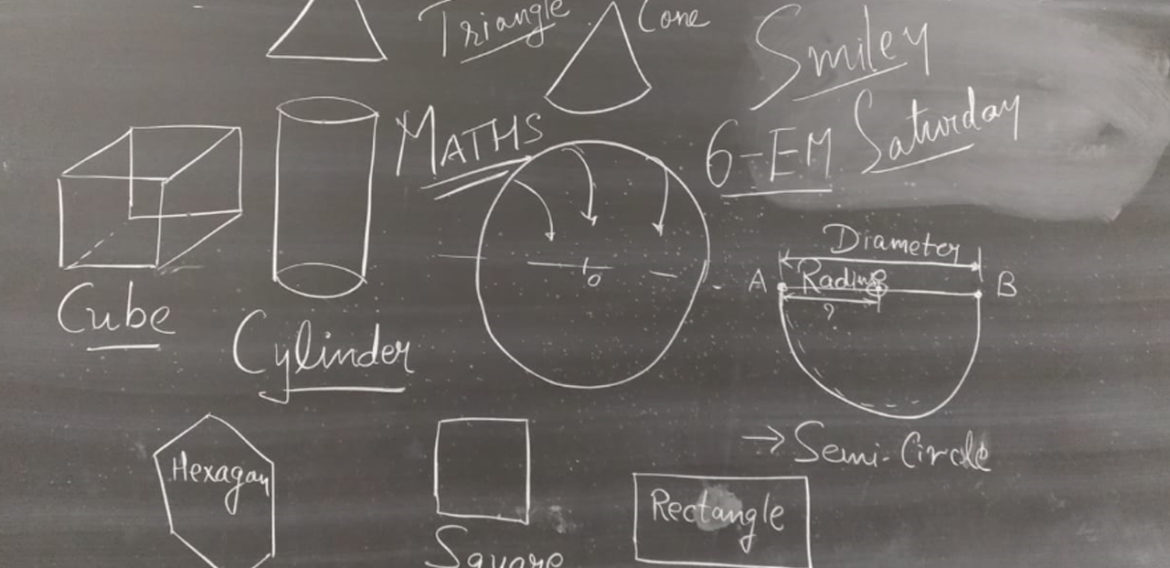 Triangle
Cone
Smiley
MATHS
6-EM Saturday
Diameter
A Radius B
?
o
Cube
Cylinder
Semi-Circle
Hexagan
Rectangle
Square